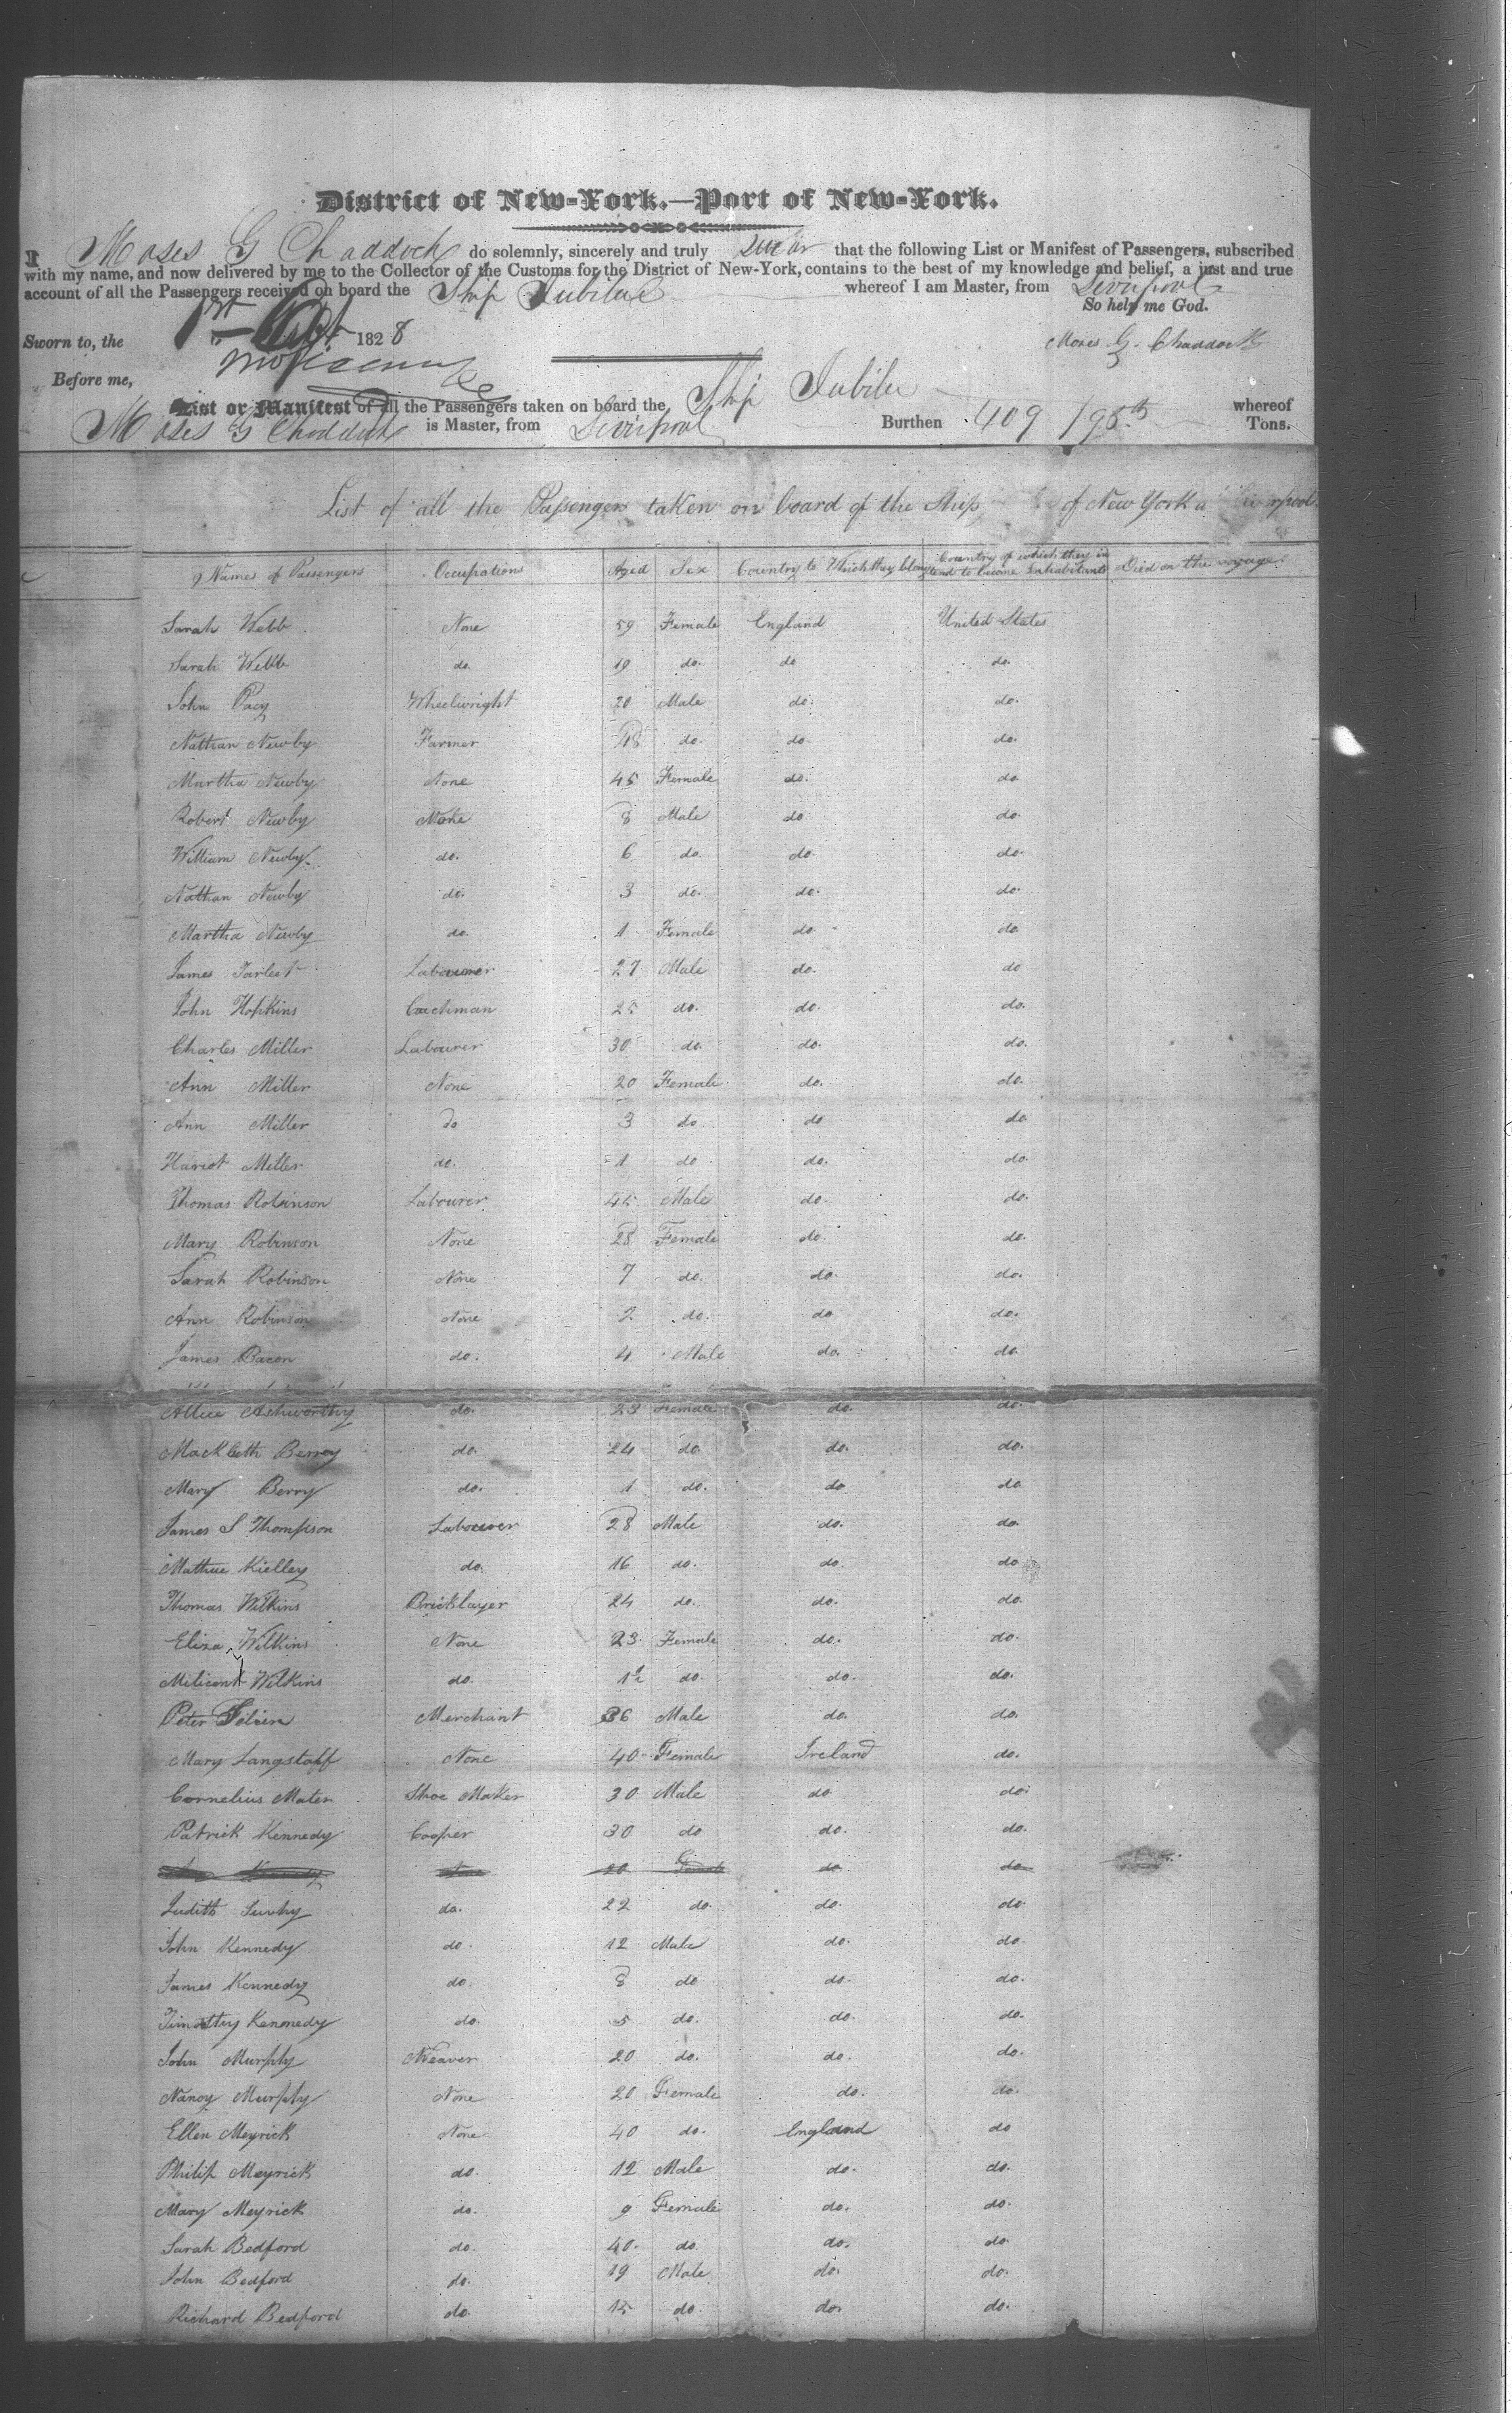 District of New-York.—Port of New-York.
I Moses G Chaddock do solemnly, sincerely and truly swear that the following List or Manifest of Passengers, subscribed
with my name, and now delivered by me to the Collector of the Customs for the District of New-York, contains to the best of my knowledge and belief, a just and true
account of all the Passengers received on board the Ship Jubilee whereof I am Master, from Liverpool
So help me God.
Sworn to, the 1st Sept 1828
Moses G. Chaddock
Before me,
List or Manifest of all the Passengers taken on board the Ship Jubilee whereof
Moses G Chaddock is Master, from Liverpool Burthen 409 /95th Tons.
List of all the Passengers taken on board of the Ship of New York
Names of Passengers Occupations Aged Sex Country to Which they belong Country of which they in tend to become Inhabitants Died on the voyage
Sarah Webb None 59 Female England United States
Sarah Webb do. 19 do. do do.
John Pacy Wheelwright 20 Male do. do.
Nathan Newby Farmer 48 do. do. do.
Martha Newby None 45 Female do. do
Robert Newby None 8 Male do do.
William Newby. do. 6 do. do. do.
Nathan Newby do. 3 do. do. do.
Martha Newby do. 1 Female do do.
James Labourer 27 Male do. do
John Hopkins Coachman 25 do. do. do.
Charles Miller Labourer 30 do. do. do.
Ann Miller None 20 Female do. do.
Ann Miller do 3 do do do
Hariot Miller do. 1 do do. do
Thomas Robinson Labourer 45 Male do. do.
Mary Robinson None 28 Female do. do.
Sarah Robinson None 7 do. do. do.
Ann Robinson None 2 do. do do.
James Bacon do. 4 Male do. do.
Allice Ashworthy do. 23 Female do. do.
Mackbeth Berrey do. 24 do. do. do.
Mary Berry do. 1 do. do do
James S Thompson Labourer 28 Male do. do.
Mathue Kielley do. 16 do. do. do
Thomas Wilkins Bricklayer 24 do. do. do.
Eliza Wilkins None 23 Female do. do.
Milicent Wilkins do. do. do. do.
Peter Merchant 36 Male do. do.
Mary Langstaff None 40 Female Ireland do.
Cornelius Mater Shoe Maker 30 Male do do.
Patrick Kennedy Cooper 30 do do. do.
Kennedy None 20 Female do. do
Judith do. 22 do. do. do
John Kennedy do. 12 Male do. do.
James Kennedy do. 8 do do. do.
Timothy Kennedy do. 5 do. do. do.
John Murphy Weaver 20 do. do. do.
Nancy Murphy None 20 Female do. do.
Ellen Meyrick None 40 do. England do
Philip Meyrick do. 12 Male do. do.
Mary Meyrick do. 9 Female do. do.
Sarah Bedford do. 40. do. do. do.
John Bedford do. 19 Male do. do.
Richard Bedford do. 15 do. do. do.